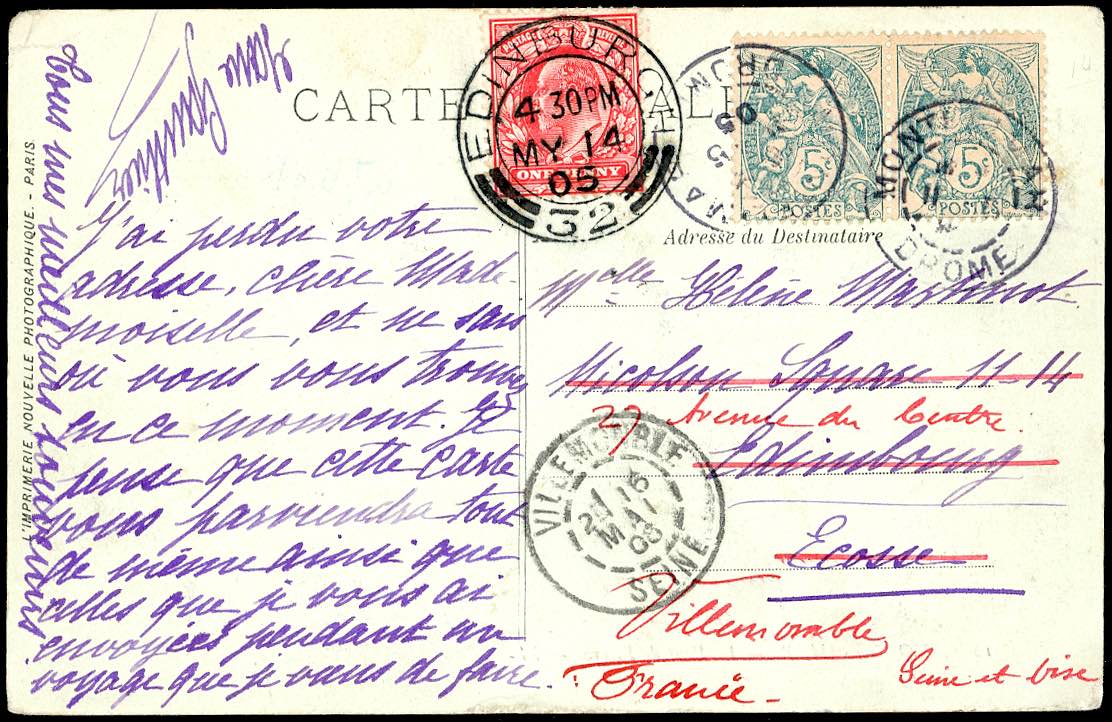 CARTE
L'IMPRIMERIE NOUVELLE PHOTOGRAPHIQUE. - PARIS.
POSTAGE REVENUE
ONE PENNY
EDINBURGH
4 30PM
MY 14
05
32
5c
POSTES
5c
POSTES
MONTELIMAR
DROME
Adresse du Destinataire
J'ai perdu votre
adresse, chère Made-
moiselle, et ne sais
où vous vous trouvez
en ce moment. Je
pense que cette carte
vous parviendra tout
de même ainsi que
celles que je vous ai
envoyées pendant un
voyage que je viens de faire.
Tous mes meilleurs souvenirs
Melle Hélène
Nicolson Square 11-14
27 Avenue du Centre.
Edimbourg
Ecosse
Villemomble
France -
Seine et Oise
VILLEMOMBLE
16
MAI
05
SEINE